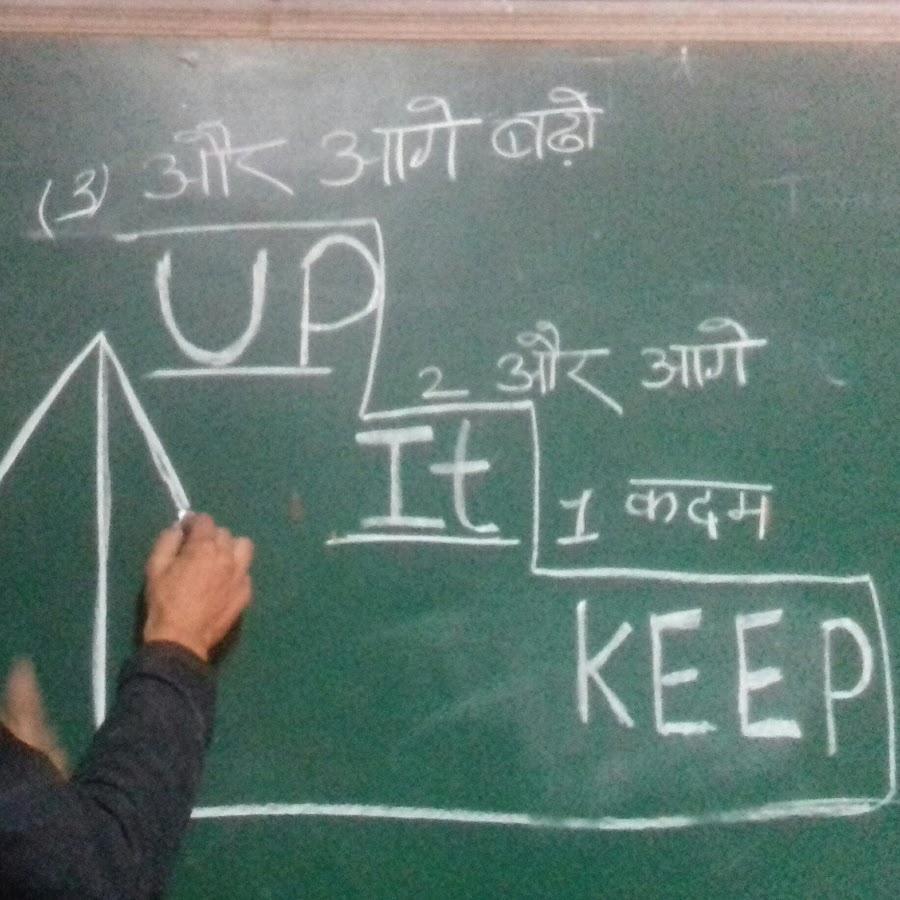 (3) और आगे बढ़ो
UP
2 और आगे
It
1 कदम
KEEP